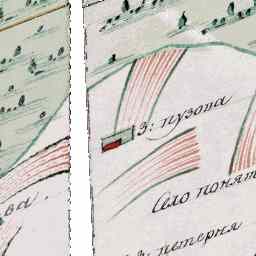 З: пузова
ва.
Село понят
З: петерня